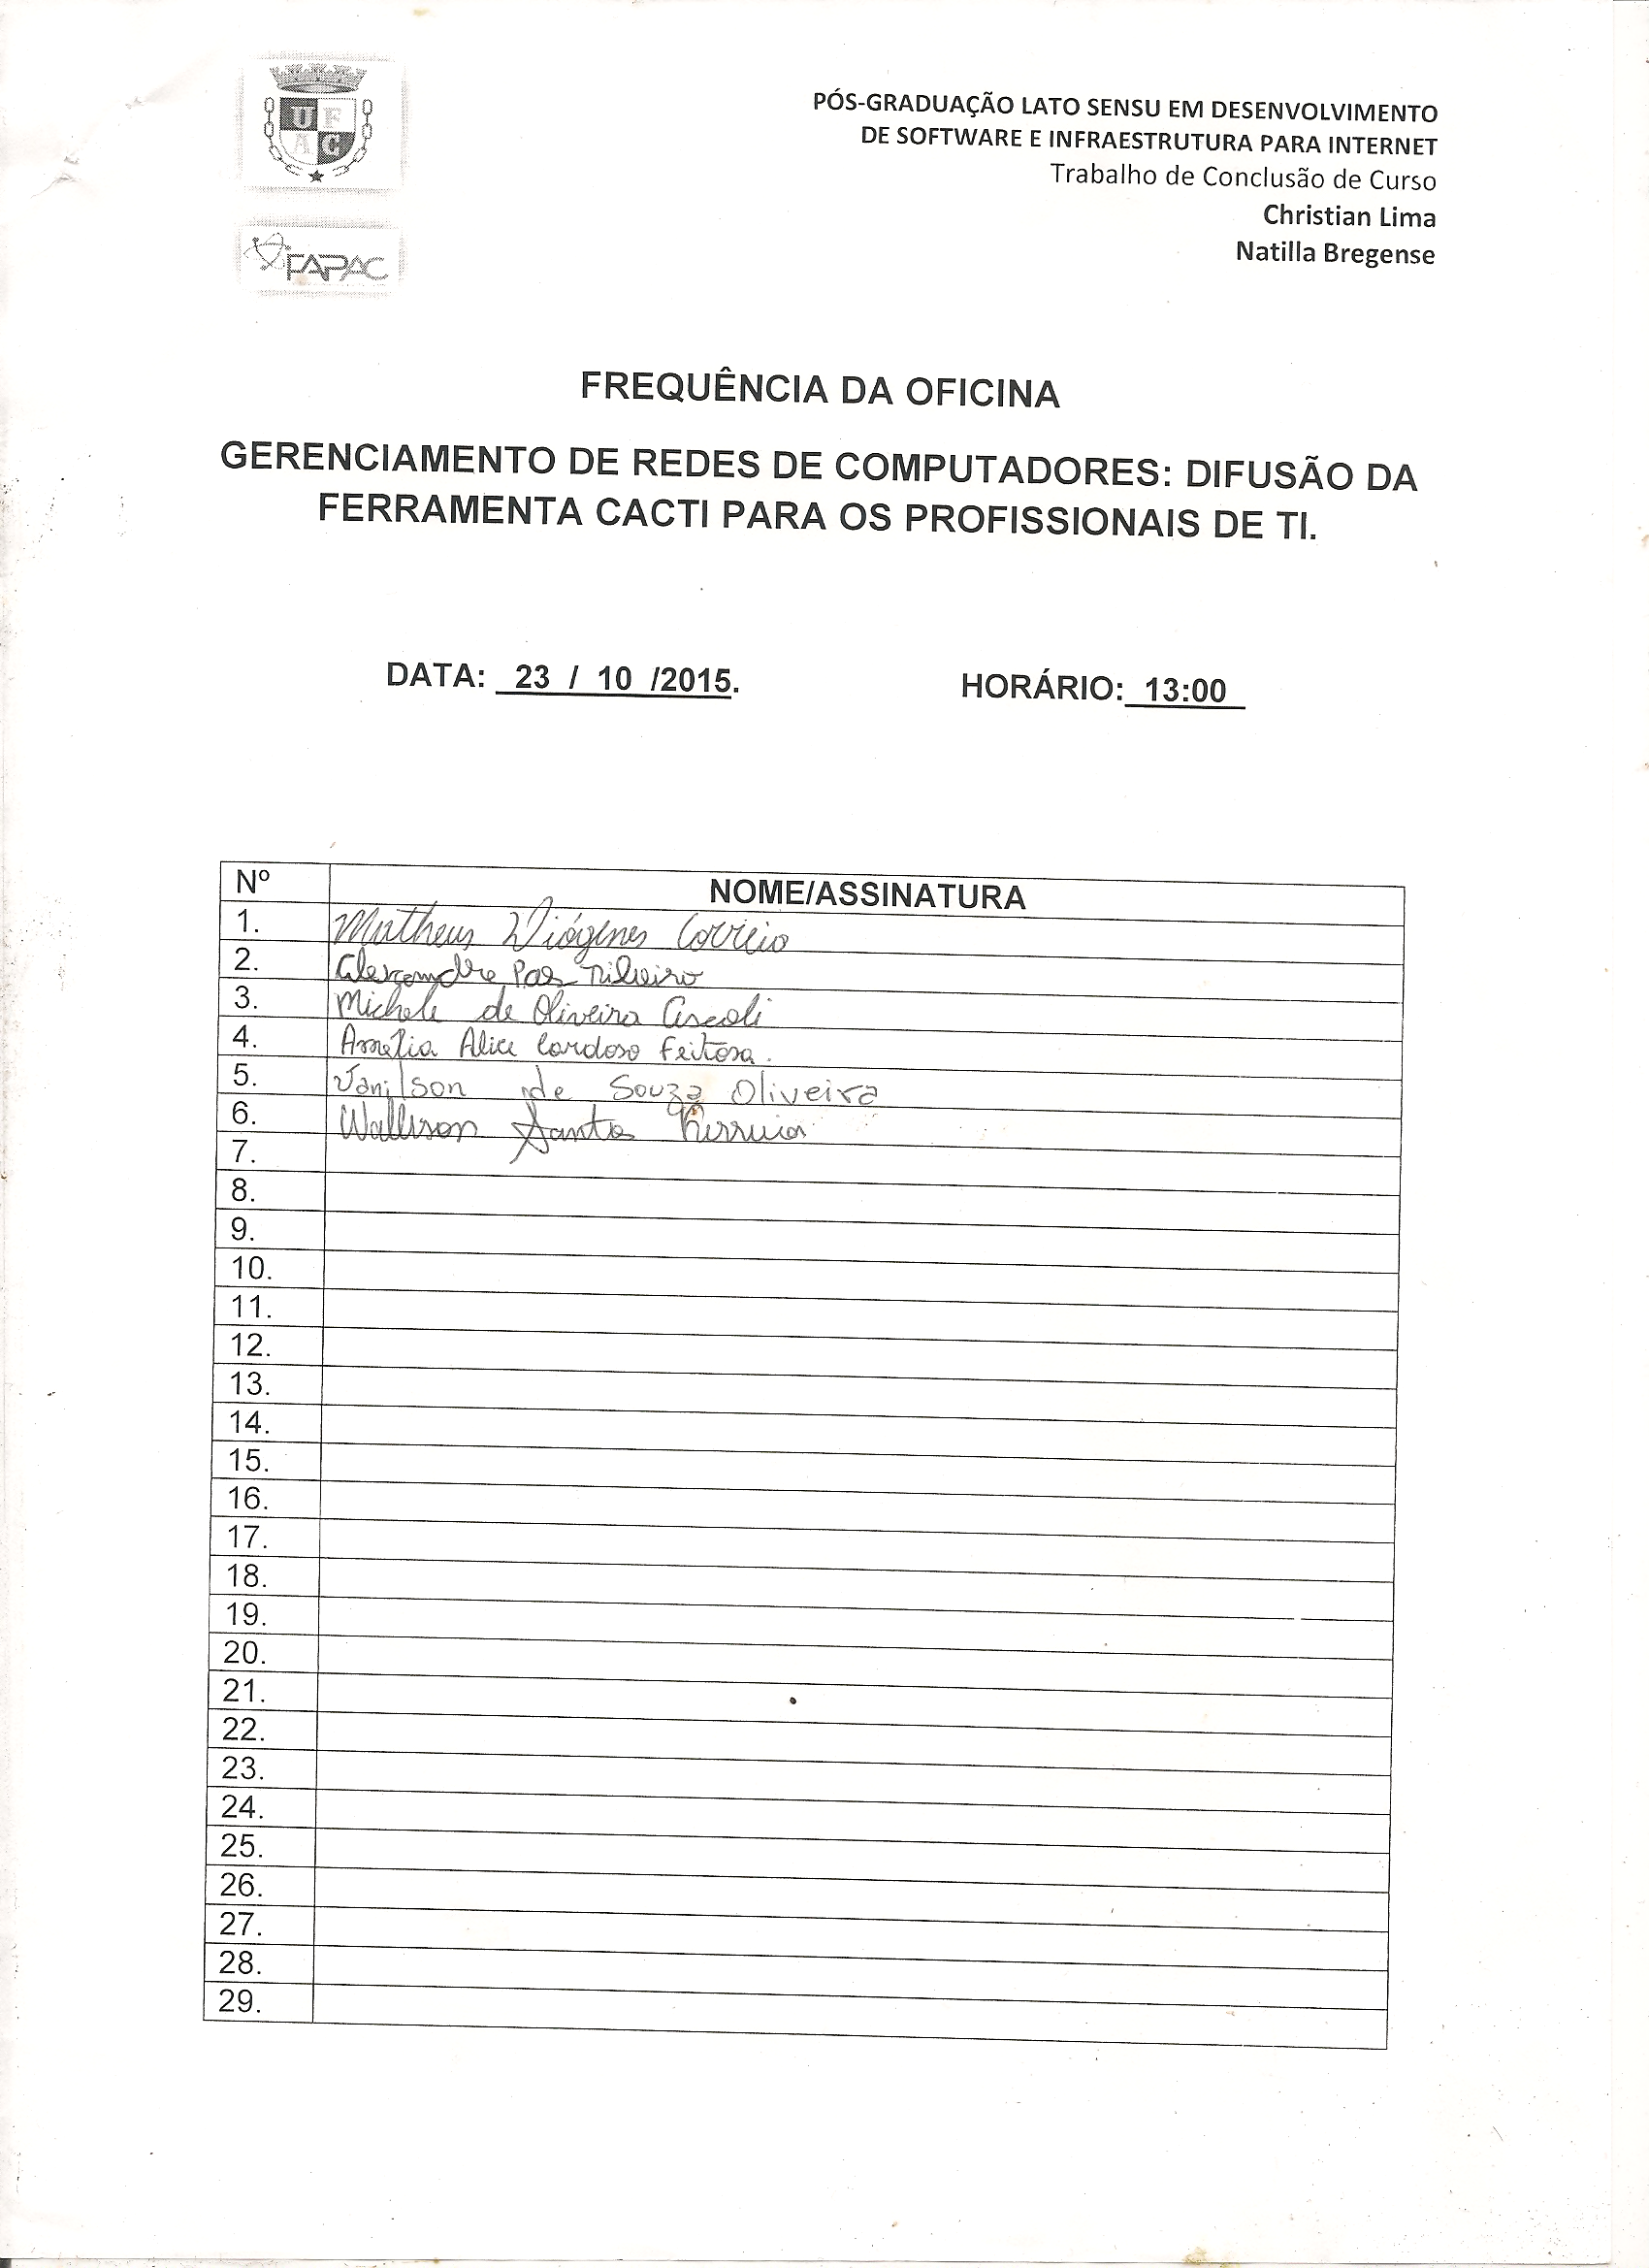 UFAC
FAPAC
PÓS-GRADUAÇÃO LATO SENSU EM DESENVOLVIMENTO
DE SOFTWARE E INFRAESTRUTURA PARA INTERNET
Trabalho de Conclusão de Curso
Christian Lima
Natilla Bregense
FREQUÊNCIA DA OFICINA
GERENCIAMENTO DE REDES DE COMPUTADORES: DIFUSÃO DA
FERRAMENTA CACTI PARA OS PROFISSIONAIS DE TI.
DATA: 23 / 10 /2015. HORÁRIO: 13:00
Nº NOME/ASSINATURA
1. Matheus Diógenes Correio
2. Alexandre Paz Ribeiro
3. Michele de Oliveira Ascoli
4. Amélia Alice Cardoso Feitosa.
5. Vanilson de Souza Oliveira
6. Wallison Santos
7.
8.
9.
10.
11.
12.
13.
14.
15.
16.
17.
18.
19.
20.
21.
22.
23.
24.
25.
26.
27.
28.
29.